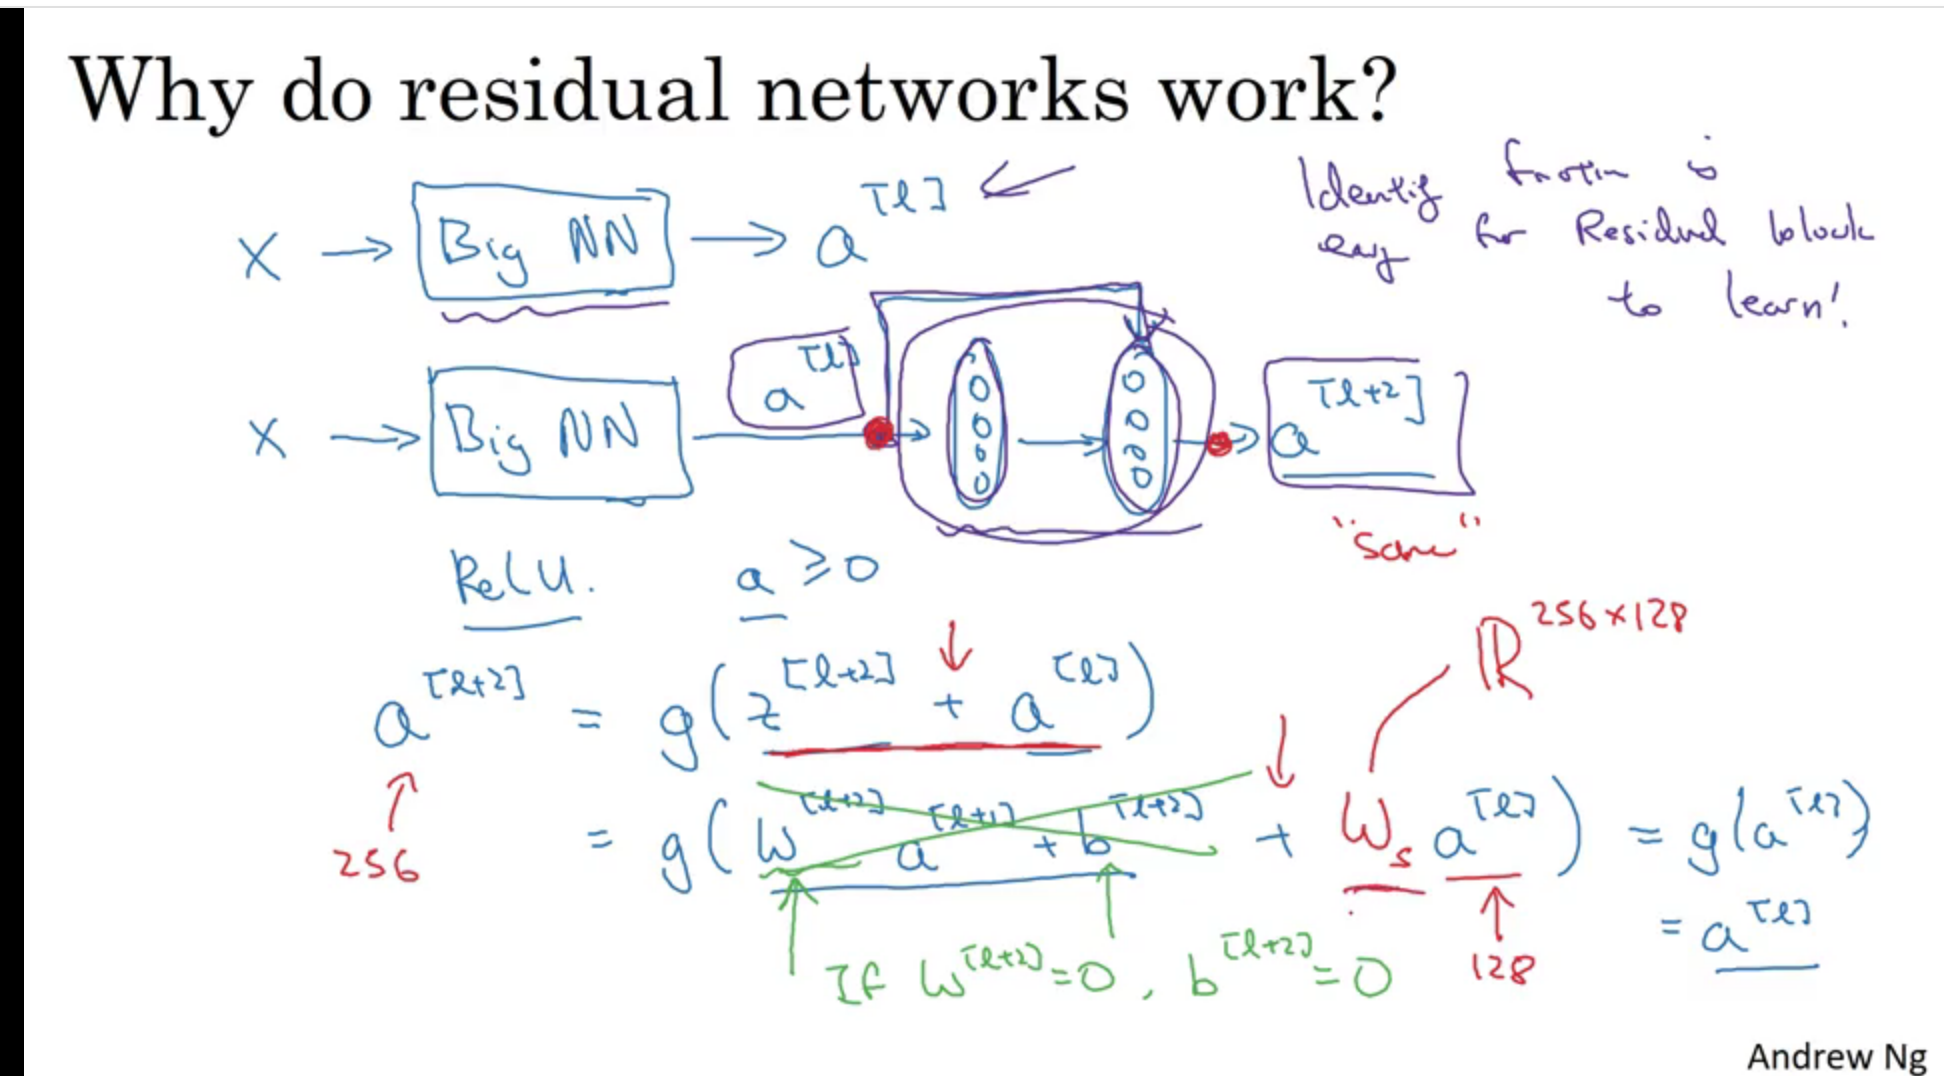 Why do residual networks work?
X → Big NN → a^[l]
Identity function is
easy for Residual block
to learn!
X → Big NN → a^[l] → → → a^[l+2]
"same"
ReLU. a ≥ 0
a^[l+2] = g(z^[l+2] + a^[l])
256
ℝ^256×128
= g(W^[l+2] a^[l+1] + b^[l+2] + W_s a^[l]) = g(a^[l])
= a^[l]
128
If W^[l+2] = 0, b^[l+2] = 0
Andrew Ng